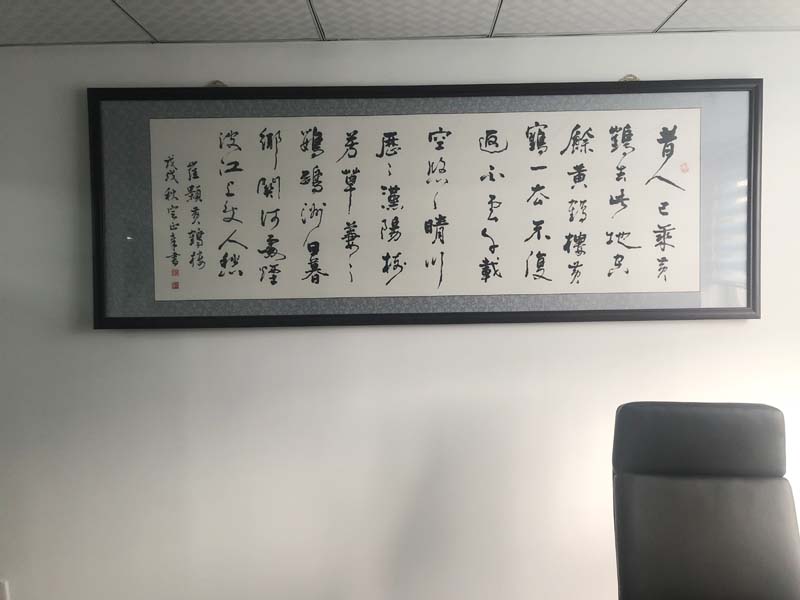 昔人已乘黄
鶴去此地空
餘黄鶴樓黄
鶴一去不復
返白雲千載
空悠〻晴川
歷〻漢陽樹
芳草萋〻
鸚鵡洲日暮
鄉關何處煙
波江上使人愁
崔顥黄鶴樓
戊戌秋
書